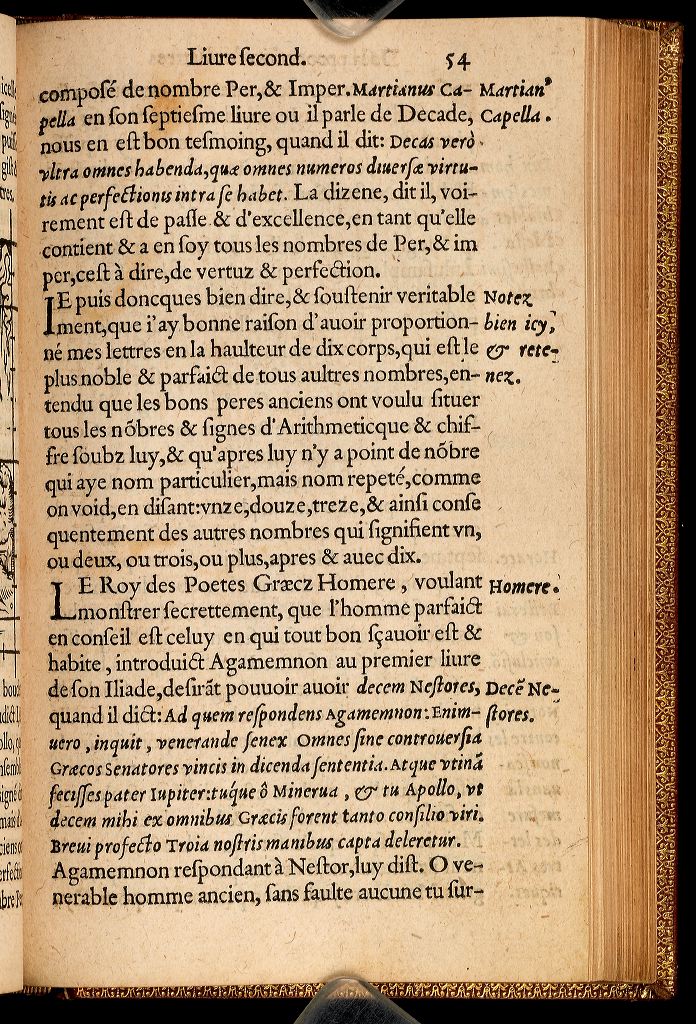 Liure second. 54
composé de nombre Per,& Imper. Martianus Ca- Martian⁹
pella en son septiesme liure ou il parle de Decade, Capella.
nous en est bon tesmoing, quand il dit: Decas verò
vltra omnes habenda,quæ omnes numeros diuersæ virtu-
tis ac perfectionis intra se habet. La dizene, dit il, voi-
rement est de passe & d'excellence,en tant qu'elle
contient & a en soy tous les nombres de Per,& im
per,cest à dire,de vertuz & perfection.
IE puis doncques bien dire,& soustenir veritable Notez
ment,que i'ay bonne raison d'auoir proportion- bien icy,
né mes lettres en la haulteur de dix corps,qui est le & rete-
plus noble & parfaict de tous aultres nombres,en- nez.
tendu que les bons peres anciens ont voulu situer
tous les nõbres & signes d'Arithmeticque & chif-
fre soubz luy,& qu'apres luy n'y a point de nõbre
qui aye nom particulier,mais nom repeté,comme
on void,en disant:vnze,douze,treze,& ainsi conse
quentement des autres nombres qui signifient vn,
ou deux, ou trois,ou plus,apres & auec dix.
LE Roy des Poetes Græcz Homere, voulant Homere.
monstrer secrettement, que l'homme parfaict
en conseil est celuy en qui tout bon sçauoir est &
habite, introduict Agamemnon au premier liure
de son Iliade,desirãt pouuoir auoir decem Nestores, Decẽ Ne-
quand il dict: Ad quem respondens Agamemnon: Enim- stores.
uero, inquit, venerande senex Omnes sine controuersia
Græcos Senatores vincis in dicenda sententia. Atque vtinã
fecisses pater Iupiter:tuque ô Minerua, & tu Apollo, vt
decem mihi ex omnibus Græcis forent tanto consilio viri.
Breui profecto Troia nostris manibus capta deleretur.
Agamemnon respondant à Nestor,luy dist. O ve-
nerable homme ancien, sans faulte aucune tu sur-